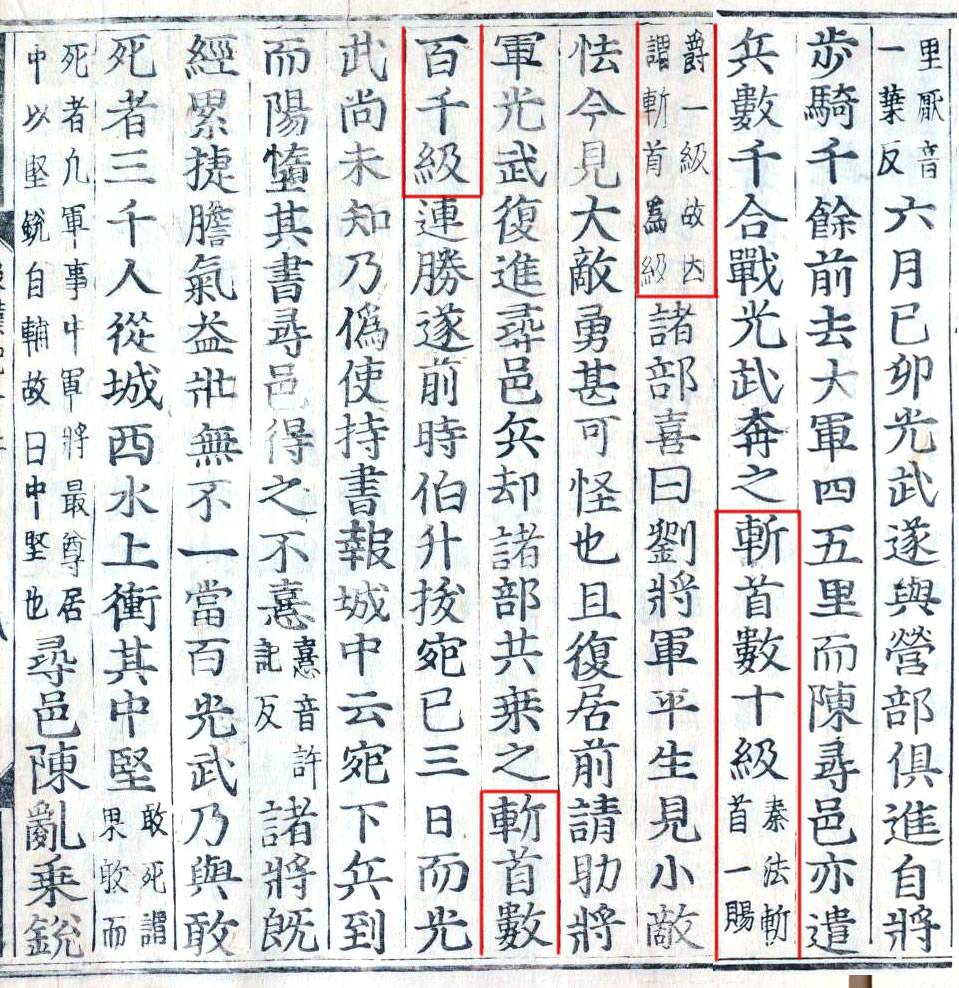 里厭音一葉反六月己卯光武遂與營部俱進自將
步騎千餘前去大軍四五里而陳尋邑亦遣
兵數千合戰光武奔之斬首數十級秦法斬首一賜
爵一級故因謂斬首爲級諸部喜曰劉將軍平生見小敵
怯今見大敵勇甚可怪也且復居前請助將
軍光武復進尋邑兵却諸部共乘之斬首數
百千級連勝遂前時伯升拔宛已三日而光
武尚未知乃僞使持書報城中云宛下兵到
而陽墮其書尋邑得之不憙憙音許記反諸將旣
經累捷膽氣益壯無不一當百光武乃與敢
死者三千人從城西水上衝其中堅敢死謂果敢而
死者凡軍事中軍將最尊居中以堅銳自輔故曰中堅也尋邑陳亂乘銳